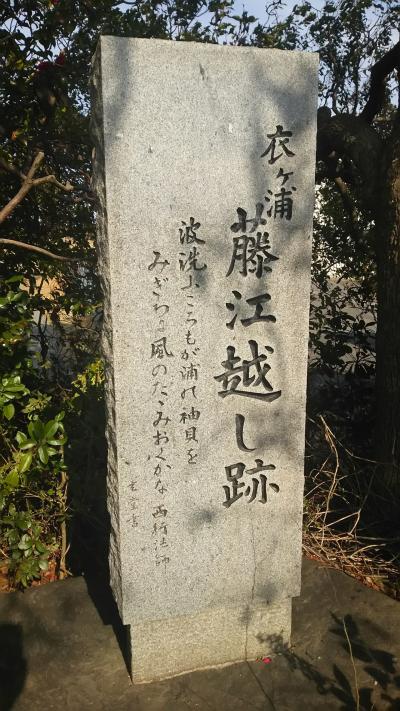 衣ヶ浦
藤江越し跡
波洗ふころもが浦の袖貝を
みぎわに風のたゝみおくかな 西行法師
書